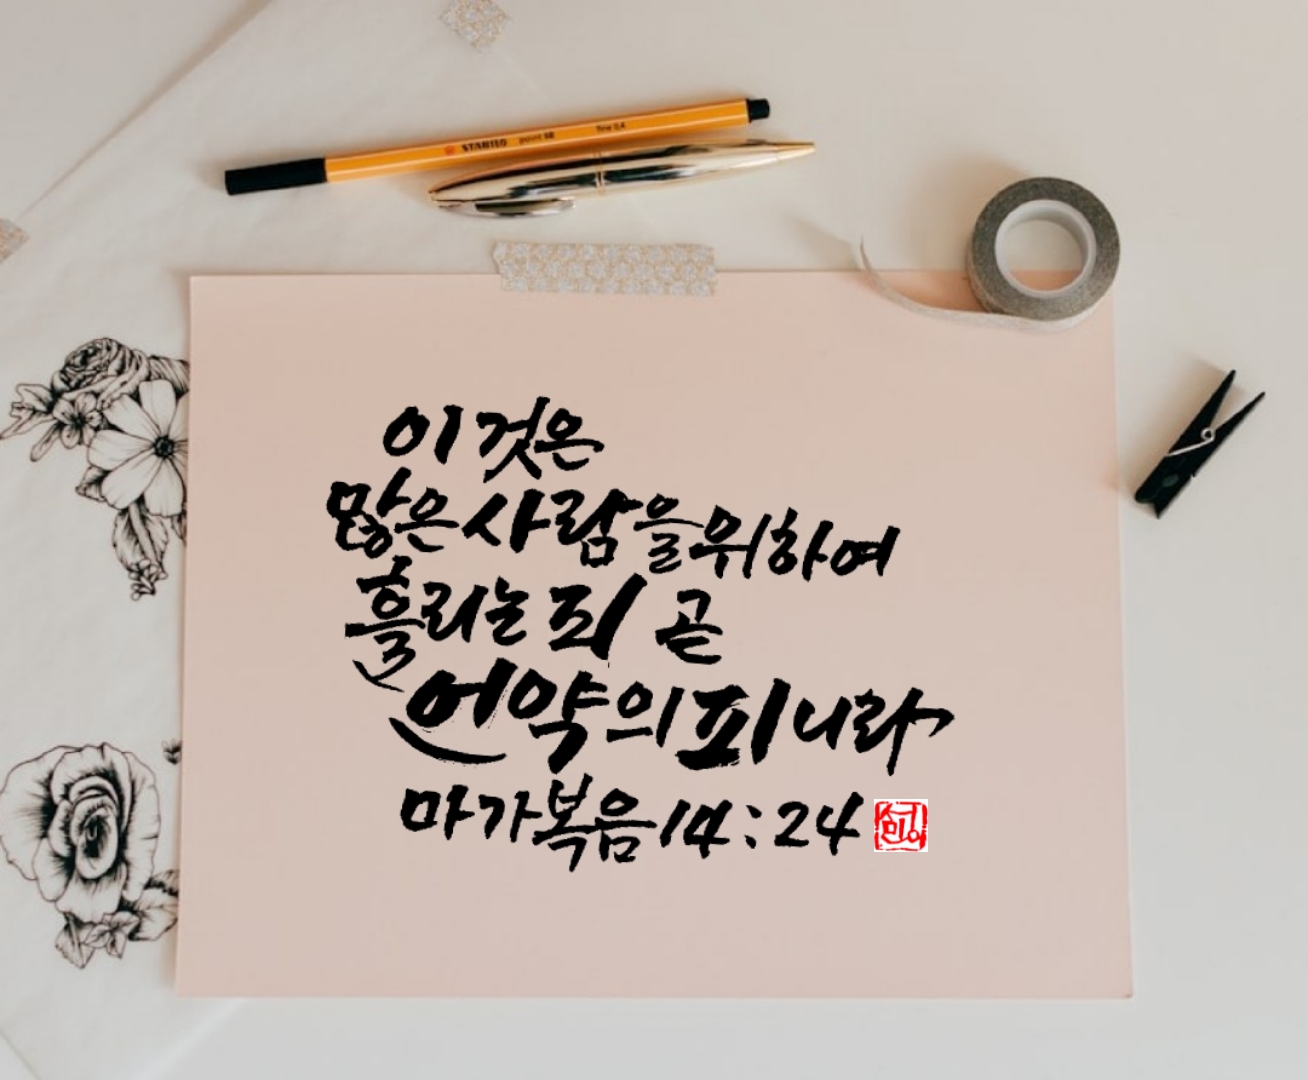 STABILO point 88 fine 0.4
이것은
많은 사람을 위하여
흘리는 피 곧
언약의 피니라
마가복음 14:24